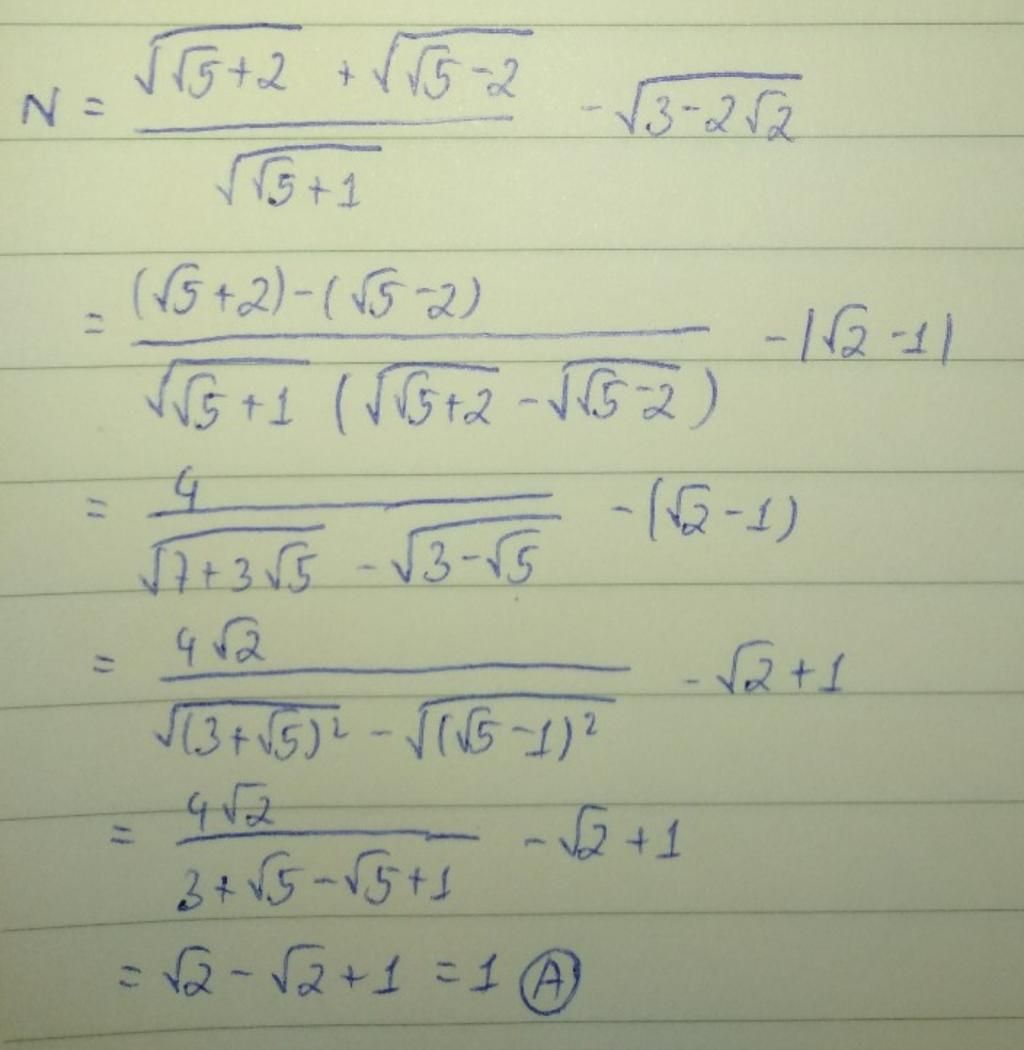 N = (√(√5+2) + √(√5-2)) / √(√5+1) - √(3-2√2)
= ((√5+2)-(√5-2)) / (√(√5+1) (√(√5+2) - √(√5-2))) - |√2-1|
= 4 / (√(7+3√5) - √(3-√5)) - (√2-1)
= 4√2 / (√((3+√5)²) - √((√5-1)²)) - √2+1
= 4√2 / (3+√5-√5+1) - √2+1
= √2 - √2+1 = 1 Ⓐ